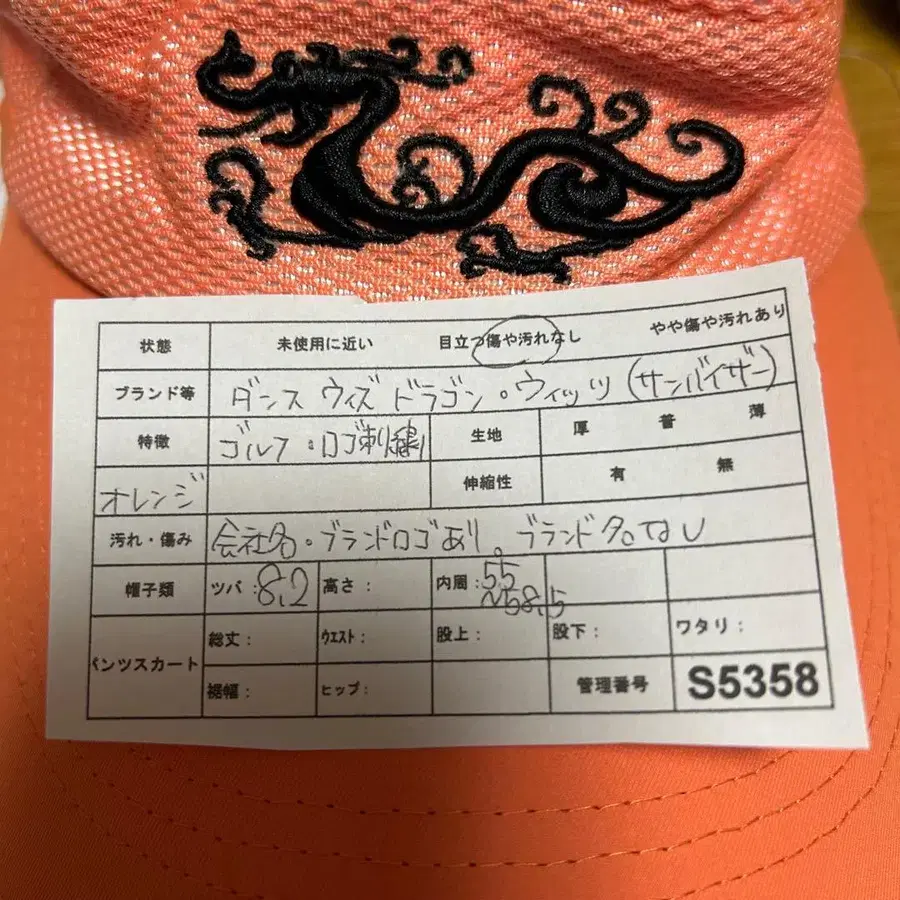 状態 未使用に近い 目立つ傷や汚れなし やや傷や汚れあり
ブランド等 ダンス ウィズ ドラゴン・ウィッツ (サンバイザー)
特徴 ゴルフ:ロゴ刺繍 生地 厚 普 薄
オレンジ 伸縮性 有 無
汚れ・傷み 会社名・ブランドロゴあり。ブランド名なし
帽子類 ツバ:8,2 高さ: 内周:55~58,5
パンツスカート 総丈: ウエスト: 股上: 股下: ワタリ:
裾幅: ヒップ: 管理番号 S5358